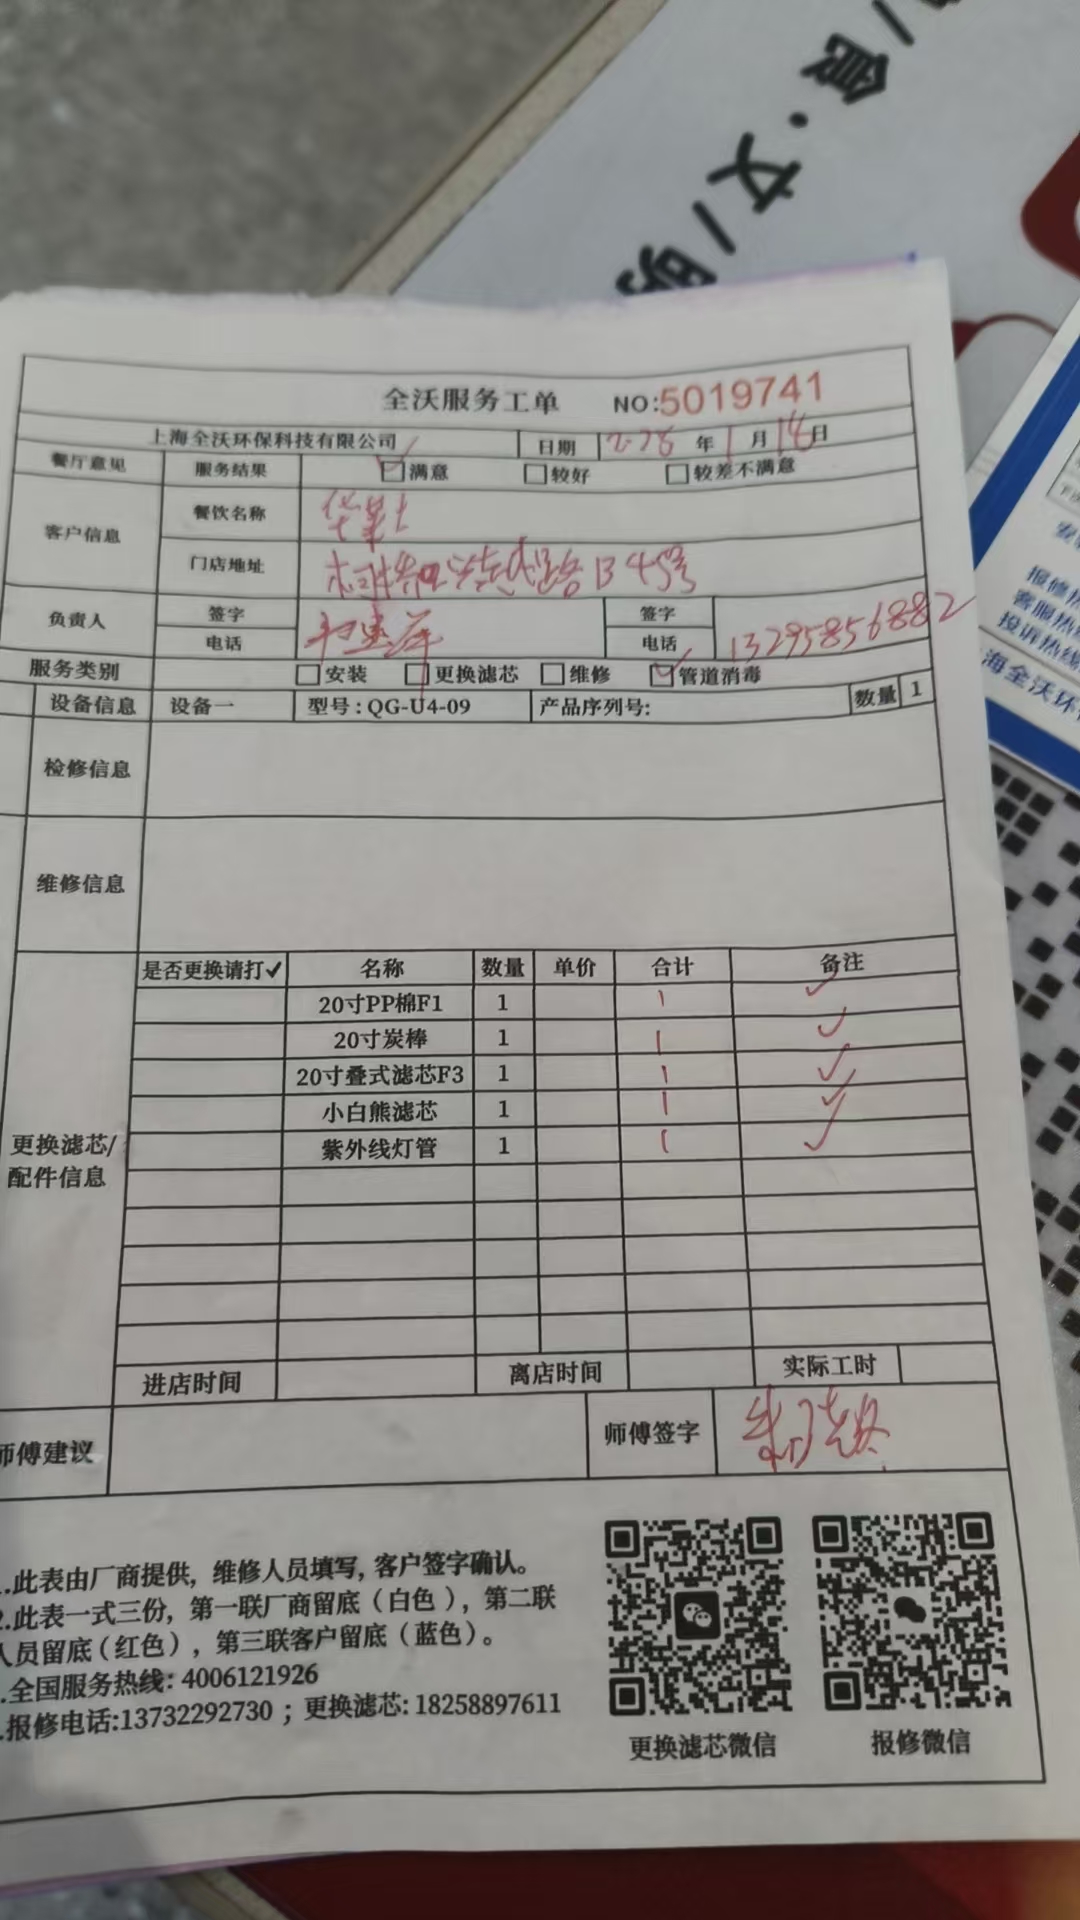 食·文/明
全沃服务工单 NO:5019741
上海全沃环保科技有限公司 日期 年1月14日
餐厅意见 服务结果 满意 较好 较差不满意
客户信息 餐饮名称 华莱士
门店地址 B45号
负责人 签字 签字
电话 电话 13295856882
服务类别 安装 更换滤芯 维修 管道消毒
设备信息 设备一 型号:QG-U4-09 产品序列号: 数量 1
检修信息
维修信息
是否更换请打✓ 名称 数量 单价 合计 备注
20寸PP棉F1 1 1 ✓
20寸炭棒 1 1 ✓
20寸叠式滤芯F3 1 1 ✓
小白熊滤芯 1 1 ✓
紫外线灯管 1 1 ✓
更换滤芯/
配件信息
进店时间 离店时间 实际工时
师傅建议 师傅签字
.此表由厂商提供，维修人员填写,客户签字确认。
2.此表一式三份，第一联厂商留底（白色），第二联
人员留底（红色），第三联客户留底（蓝色）。
.全国服务热线: 4006121926
.报修电话:13732292730 ；更换滤芯: 18258897611
更换滤芯微信 报修微信
报修热
客服热
投诉热线
海全沃环